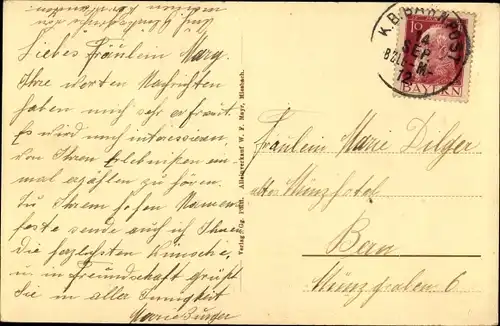 Liebes Fräulein Mary.
Ihre werten Nachrichten
haben mich sehr erfreut.
Es wird mich interessieren,
von Ihren Erlebnissen ein-
mal erzählen zu hören.
Zu Ihrem hohen Namens-
feste sende auch ich Ihnen
die herzlichsten Wünsche,
u. in Freundschaft grüßt
Sie in aller Innigkeit
Marie Burger
Verlag: Gg. Pöltl. Alleinverkauf W. F. Mayr, Miesbach.
K.B. BAHNPOST
4
SEP
12
10
BAYERN
Fräulein Marie Dilger
altes Münzhotel
Bern
Münzgraben 6